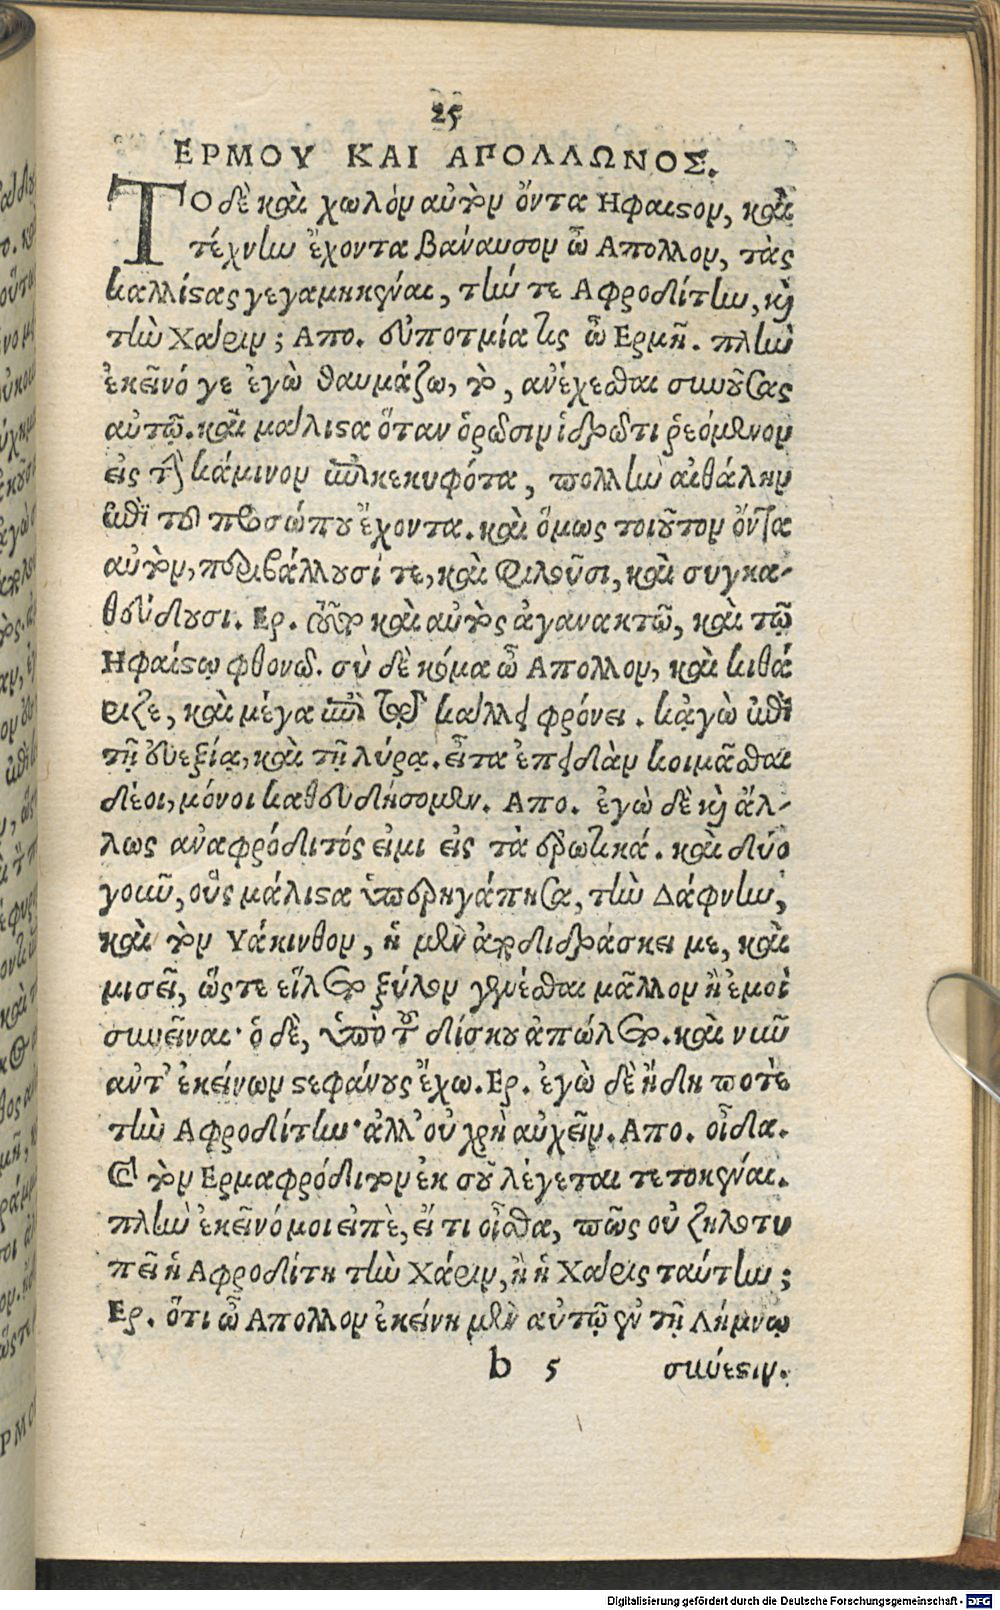 25
ΕΡΜΟΥ ΚΑΙ ΑΠΟΛΛΩΝΟΣ.
ΤΟ δὲ καὶ χωλὸν αὐτὸν ὄντα Ηφαιστον, καὶ
τέχνην ἔχοντα βάναυσον ὦ Απολλον, τὰς
καλλίστας γεγαμηκέναι, τήν τε Αφροδίτην, κὶ
τὴν Χάριν; Απο. εὐποτμία τις ὦ Ερμῆ. πλὴν
ἐκεῖνό γε ἐγὼ θαυμάζω, τὸ, ἀνέχεσθαι συνούσας
αὐτῷ. καὶ μάλιστα ὅταν ὁρῶσιν ἱδρῶτι ῥεόμενον
εἰς τὴν κάμινον ἐπικεκυφότα, πολλὴν αἰθάλην
ἐπὶ τοῦ προσώπου ἔχοντα. καὶ ὅμως τοιοῦτον ὄντα
αὐτὸν, περιβάλλουσί τε, καὶ φιλοῦσι, καὶ συγκα-
θεύδουσι. Ερ. τοῦτο καὶ αὐτὸς ἀγανακτῶ, καὶ τῷ
Ηφαίστῳ φθονῶ. σὺ δὲ κόμα ὦ Απολλον, καὶ κιθά
ριζε, καὶ μέγα ἐπὶ τῷ κάλλει φρόνει. κᾀγὼ ἐπὶ
τῇ εὐεξίᾳ, καὶ τῇ λύρᾳ. εἶτα ἐπειδὰν κοιμᾶσθαι
δέοι, μόνοι καθευδήσομεν. Απο. ἐγὼ δὲ κὶ ἄλ-
λως ἀναφρόδιτός εἰμι εἰς τὰ ἐρωτικά. καὶ δύο
γοιῦ, οὓς μάλιστα ὑπερηγάπησα, τὴν Δάφνην,
καὶ τὸν Υάκινθον, ἡ μὲν ἀποδιδράσκει με, καὶ
μισεῖ, ὥστε εἵλετο ξύλον γενέσθαι μᾶλλον ἢ ἐμοὶ
συνεῖναι· ὁ δὲ, ὑπὸ τοῦ δίσκου ἀπώλετο. καὶ νιῦ
αὐτ' ἐκείνων στεφάνους ἔχω. Ερ. ἐγὼ δὲ ἤδη ποτὲ
τὴν Αφροδίτην· ἀλλ' οὐ χρὴ αὐχεῖν. Απο. οἶδα.
καὶ τὸν Ερμαφρόδιτον ἐκ σοῦ λέγεται τετοκέναι.
πλὴν ἐκεῖνό μοι εἰπὲ, εἴ τι οἶσθα, πῶς οὐ ζηλοτυ
πεῖ ἡ Αφροδίτη τὴν Χάριν, ἢ ἡ Χάρις ταύτην;
Ερ. ὅτι ὦ Απολλον ἐκείνη μὲν αὐτῷ ἐν τῇ Λήμνῳ
b 5 σύνεστιν.
Digitalisierung gefördert durch die Deutsche Forschungsgemeinschaft - DFG